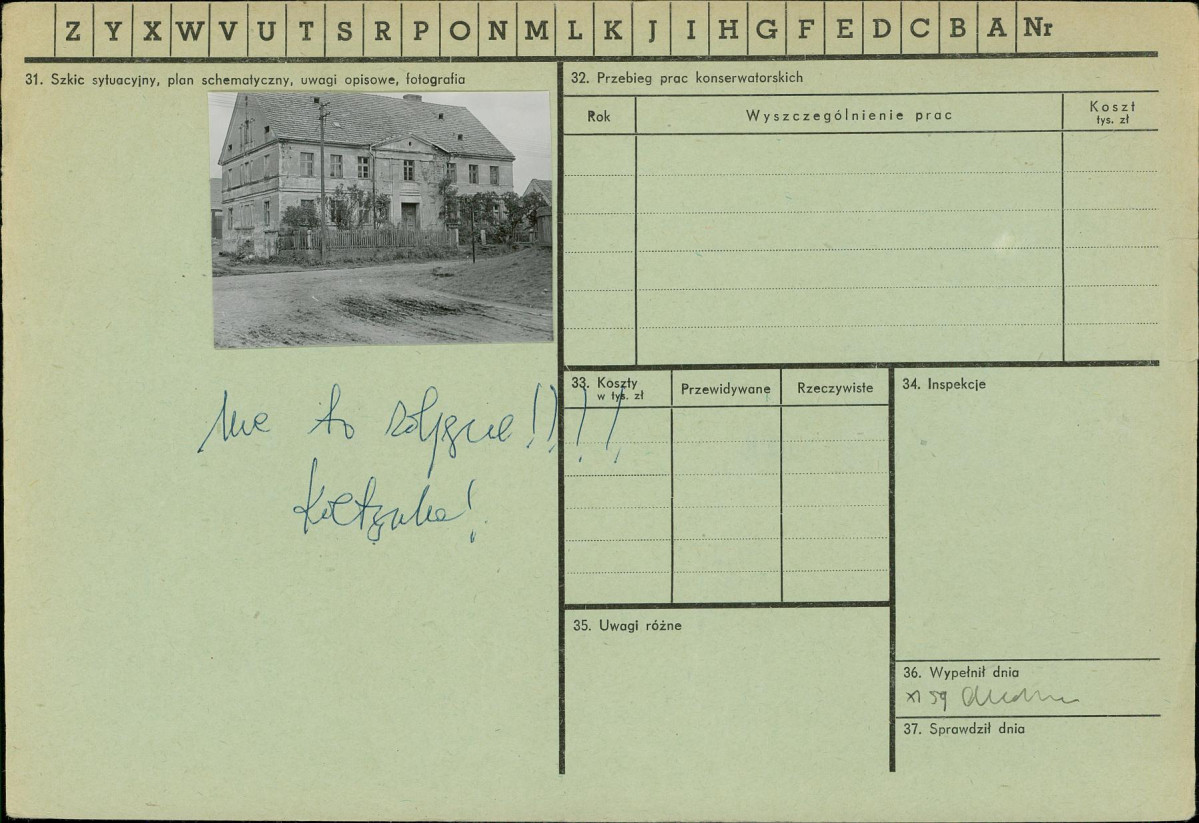 Z Y X W V U T S R P O N M L K J I H G F E D C B A Nr
31. Szkic sytuacyjny, plan schematyczny, uwagi opisowe, fotografia
to !!!!
!
32. Przebieg prac konserwatorskich
Rok
Wyszczególnienie prac
Koszt
tys. zł
33. Koszty
w tys. zł
Przewidywane
Rzeczywiste
34. Inspekcje
35. Uwagi różne
36. Wypełnił dnia
XI 59
37. Sprawdził dnia